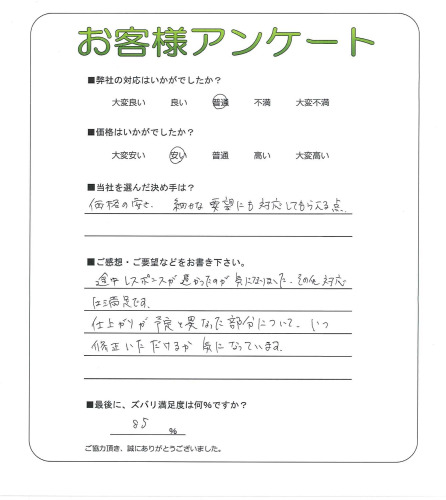 お客様アンケート
■弊社の対応はいかがでしたか?
大変良い 良い 普通 不満 大変不満
■価格はいかがでしたか?
大変安い 安い 普通 高い 大変高い
■当社を選んだ決め手は?
価格の安さ、細かな要望にも対応してもらえる点。
■ご感想・ご要望などをお書き下さい。
途中レスポンスが遅かったのが気になりました。その他対応
は満足です。
仕上がりが予定と異なった部分について、いつ
修正いただけるか気になっています。
■最後に、ズバリ満足度は何%ですか?
85 %
ご協力頂き、誠にありがとうございました。